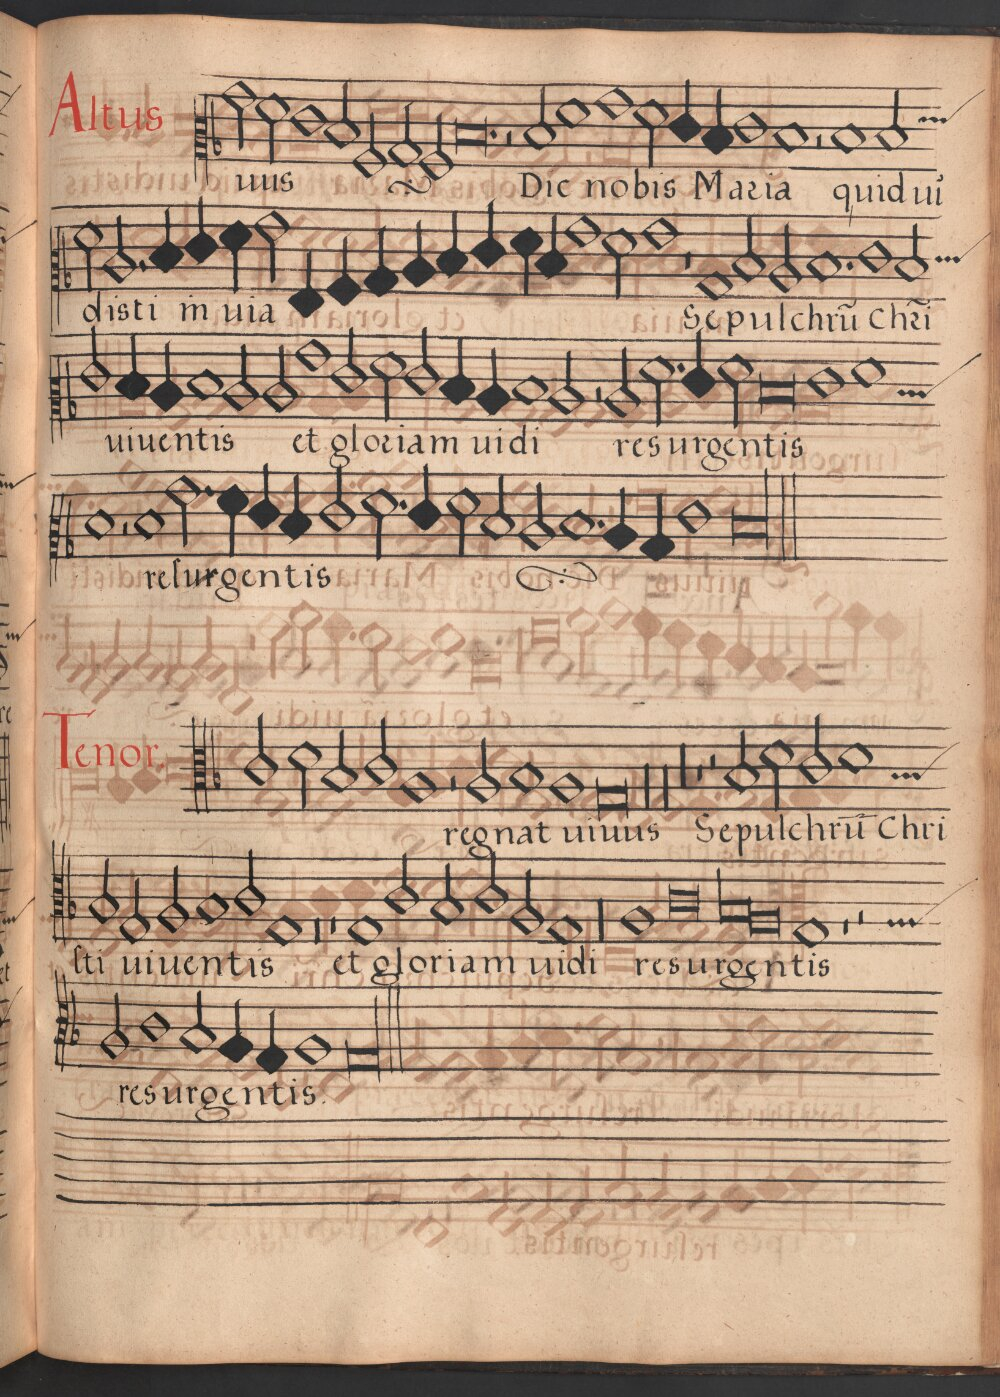 Altus
uus Dic nobis Maria quid ui
disti in uia Sepulchrū Chr̄i
uiuentis et gloriam uidi resurgentis
resurgentis
Tenor.
regnat uiuus Sepulchrū Chri
sti uiuentis et gloriam uidi resurgentis
resurgentis.